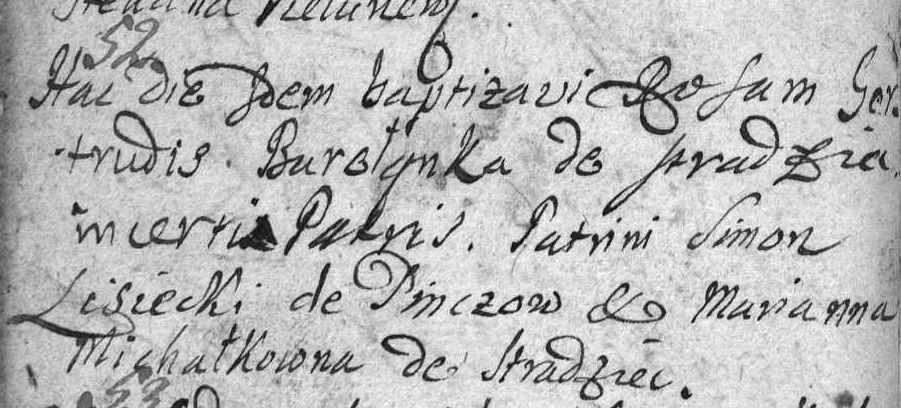 52
Hac die Idem baptizavi Rosam Ger
trudis. Burstynka de Stradziei.
incerti Patris. Patrini Simon
Lisiecki de Pinczow & Marianna
Michałkowna de Stradziei.
53